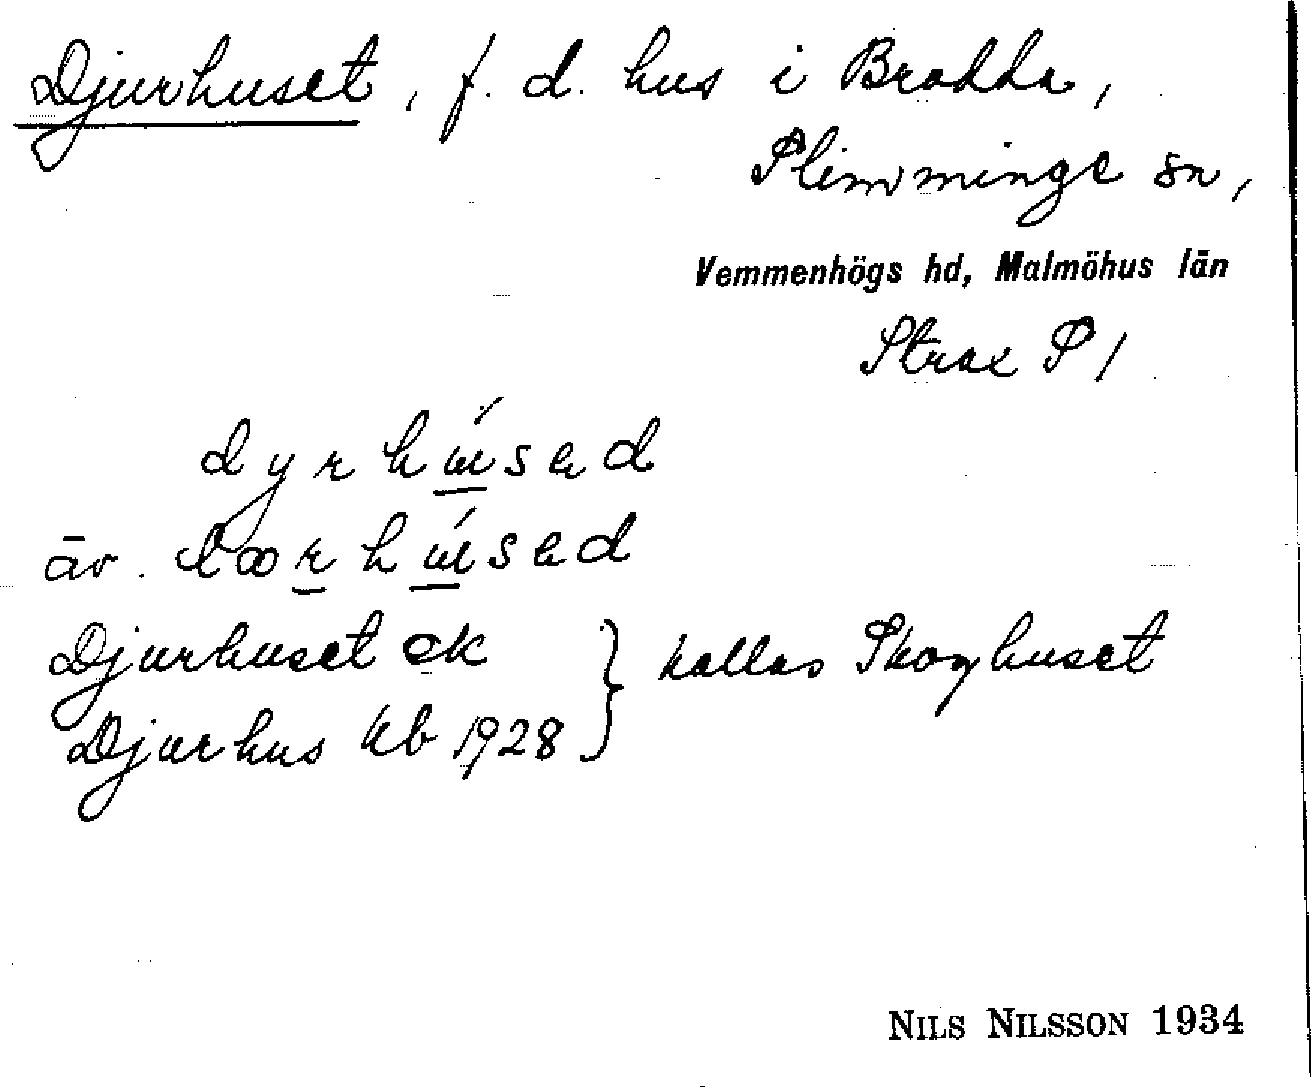 Djurhuset, f. d. hus i Brodda,
Slimminge sn,
Vemmenhögs hd, Malmöhus län
Strax S /
dyrhúsad
äv. tærhúsad
Djurhuset ek } kallas Skoghuset
Djurhus kb 1928
NILS NILSSON 1934